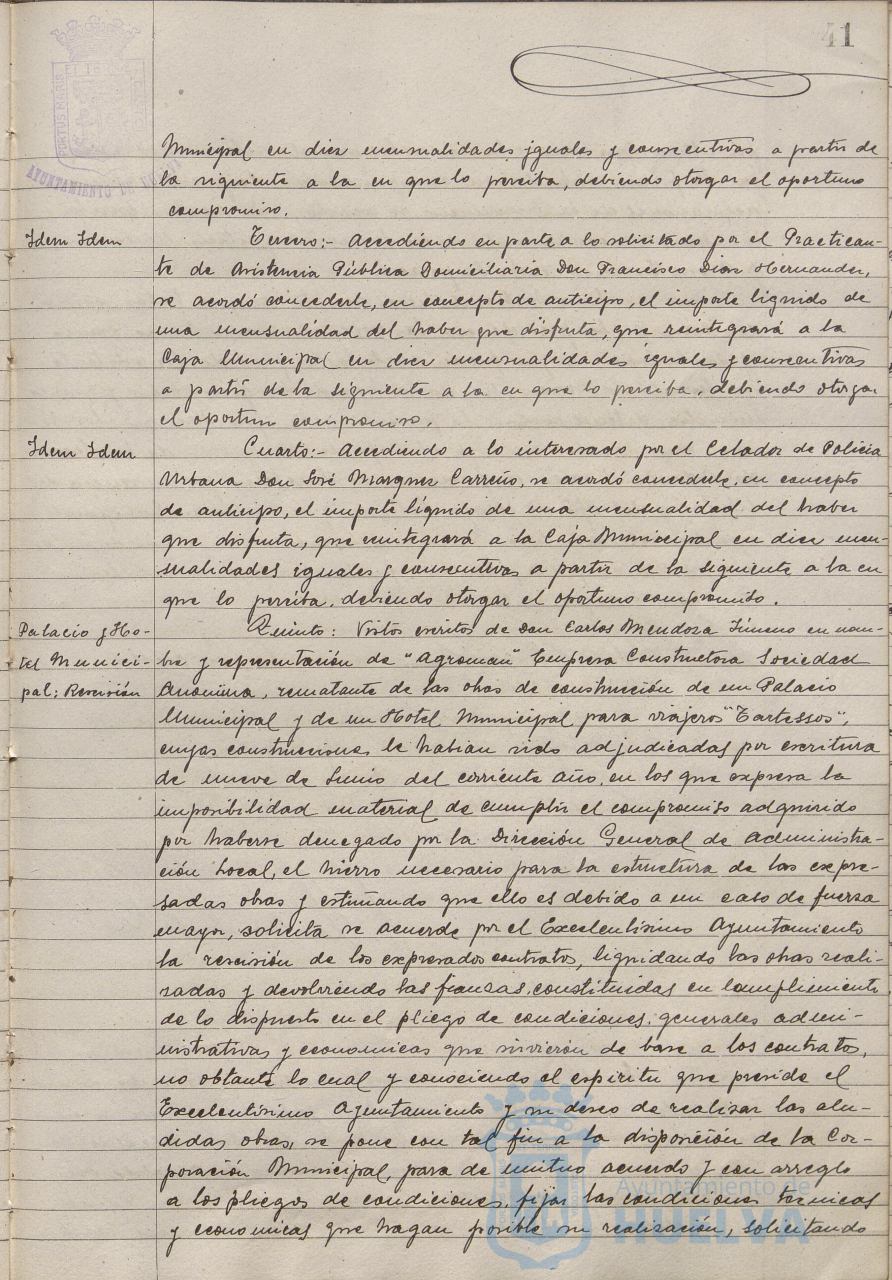 41
Municipal en diez mensualidades iguales y consecutivas a partir de
la siguiente a la en que lo perciba, debiendo otorgar el oportuno
compromiso.
Idem Idem
Tercero:- Accediendo en parte a lo solicitado por el Practican-
te de Asistencia Pública Domiciliaria Don Francisco Diaz Hernandez,
se acordó concederle, en concepto de anticipo, el importe líquido de
una mensualidad del haber que disfruta, que reintegrará a la
Caja Municipal en diez mensualidades iguales y consecutivas
a partir de la siguiente a la en que lo perciba, debiendo otorgar
el oportuno compromiso.
Idem Idem
Cuarto:- Accediendo a lo interesado por el Celador de Policia
Urbana Don José Marquez Carreño, se acordó concederle, en concepto
de anticipo, el importe líquido de una mensualidad del haber
que disfruta, que reintegrará a la Caja Municipal en diez men-
sualidades iguales y consecutivas a partir de la siguiente a la en
que lo perciba, debiendo otorgar el oportuno compromiso.
Palacio y Ho-
tel Munici-
pal; Rescisión
Quinto: Vistos escritos de Don Carlos Mendoza Jimeno en nom-
bre y representación de "Agroman" Empresa Constructora Sociedad
Anónima, rematante de las obras de construcción de un Palacio
Municipal y de un Hotel Municipal para viajeros "Tartessos",
cuyas construcciones le habian sido adjudicadas por escritura
de nueve de Junio del corriente año, en los que expresa la
imposibilidad material de cumplir el compromiso adquirido
por haberse denegado por la Dirección General de Administra-
ción Local, el hierro necesario para la estructura de las expre-
sadas obras y estimando que ello es debido a un caso de fuerza
mayor, solicita se acuerde por el Excelentísimo Ayuntamiento
la rescisión de los expresados contratos, liquidando las obras reali-
zadas y devolviendo las fianzas constituidas en cumplimiento
de lo dispuesto en el pliego de condiciones generales admi-
nistrativas y economicas que sirvieron de base a los contratos,
no obtante lo cual y conociendo el espiritu que preside el
Excelentísimo Ayuntamiento y su deseo de realizar las alu-
didas obras, se pone con tal fin a la disposición de la Cor-
poración Municipal, para de mutuo acuerdo y con arreglo
a los pliegos de condiciones, fijar las condiciones tecnicas
y economicas que hagan posible su realización, solicitando
Ayuntamiento de
HUELVA